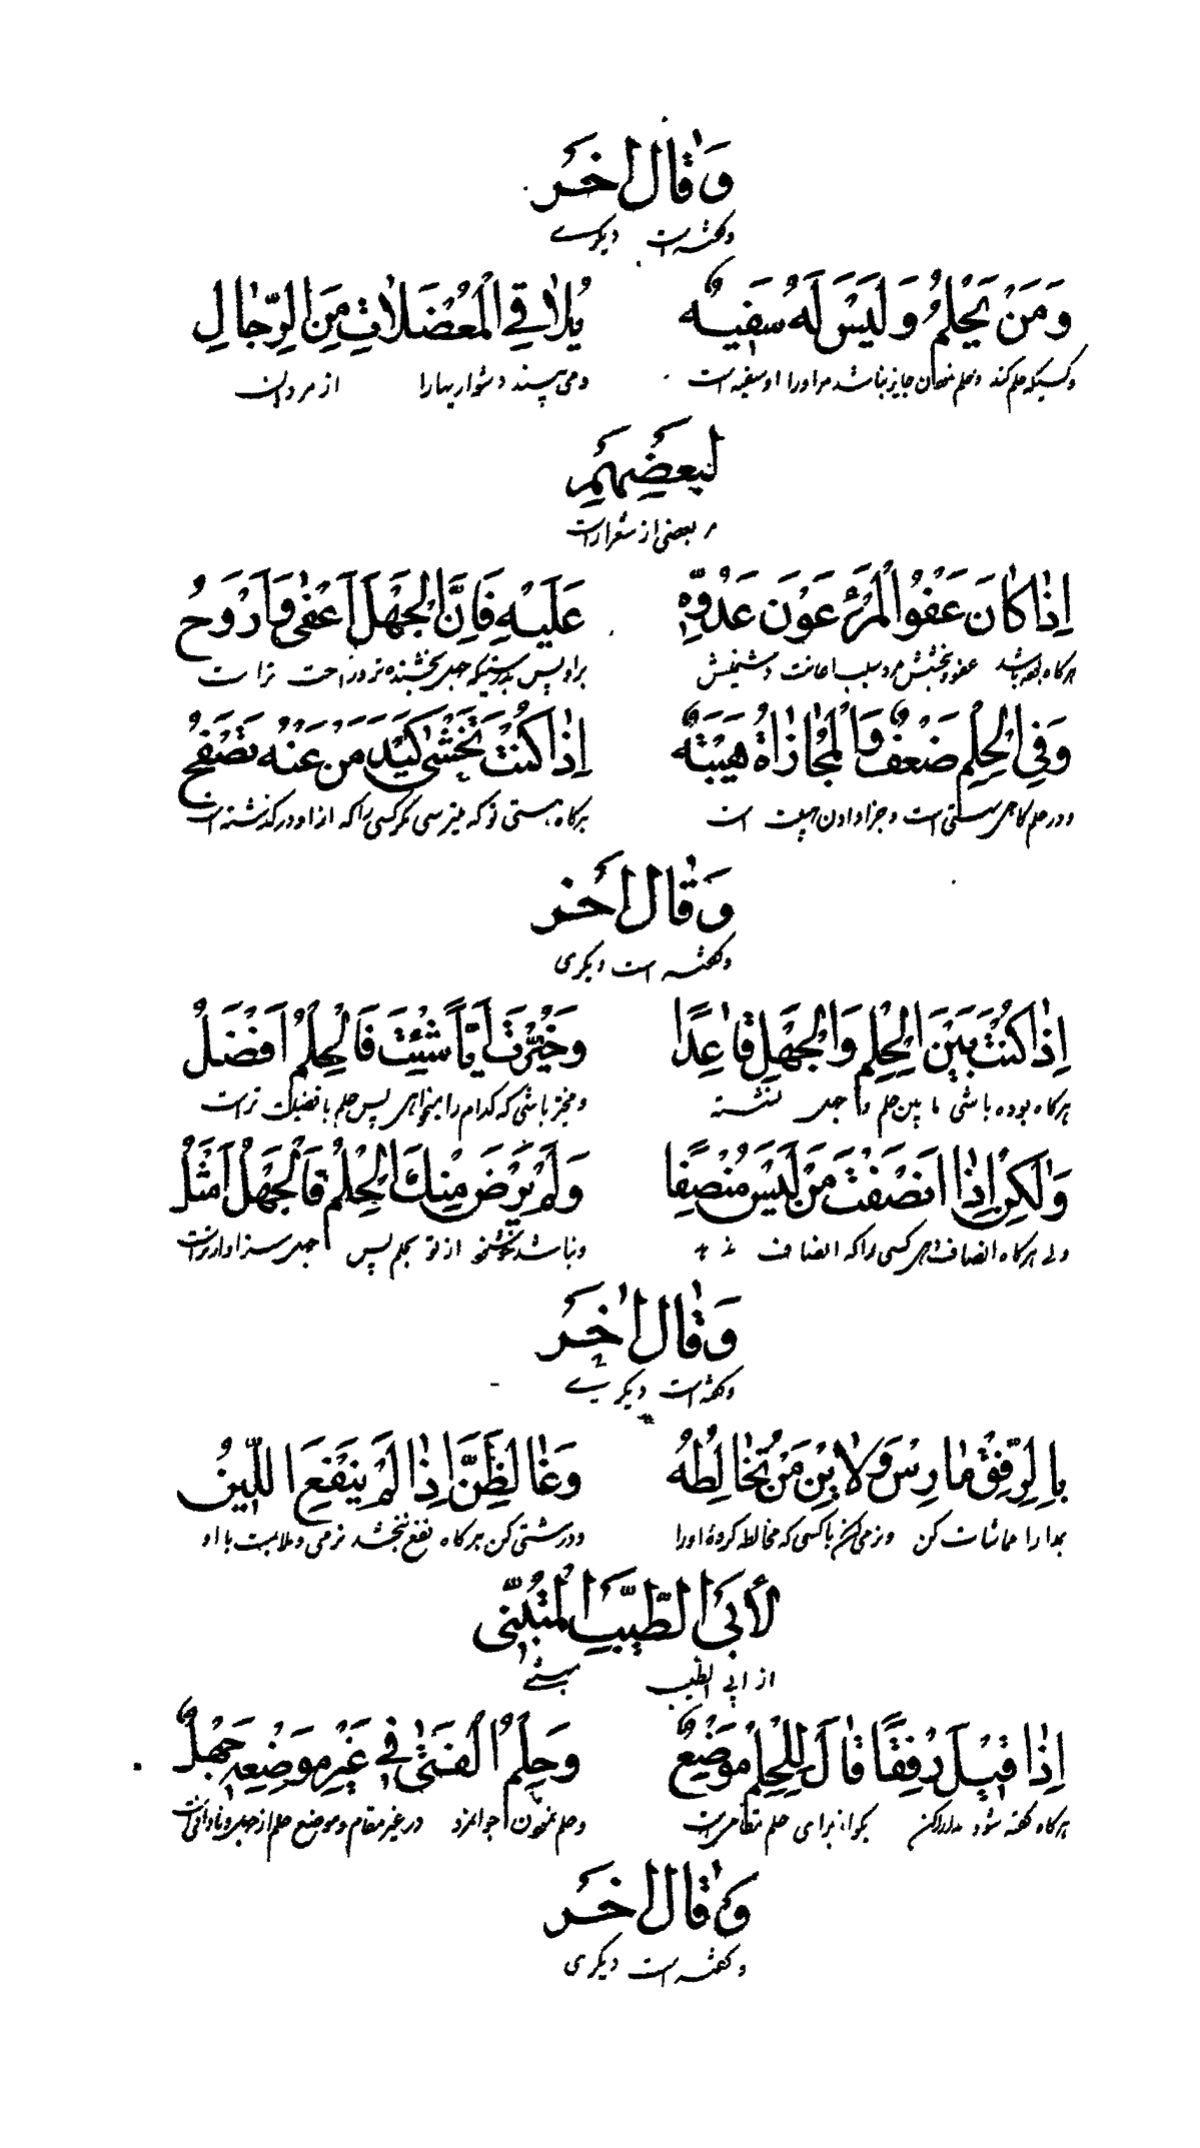 وَقَالَ اٰخَر
وگفته است دیگرے
وَمَنْ يَحْلُمُ وَلَيْسَ لَهُ سَفيهٌ يُلاقِي الْمُعْضَلاتِ مِنَ الرِّجالِ
وکسیکه حلم کند مراورا سفیه است دشواریها را از مردان
لِبَعْضِهِم
بعضی از شعرا است
اِذٰا كٰانَ عَفْوُ الْمَرْءِ عَوْنَ عَدُوِّهِ عَلَيْهِ فَاِنَّ الْجَهْلَ اَعْفٰى وَاَرْوَحُ
هرگاه بوده باشد عفو و بخشش مرد سبب اعانت دشمنش
وَفِي الْحِلْمِ ضَعْفٌ وَالْمُجٰازٰاةُ هَيْبَةٌ اِذٰا كُنْتَ تَخْشٰى كَيْدَ مَنْ عَنْهُ تَصْفَحُ
ودر حلم گاهی سستی است وجزا دادن هیبت است
وَقٰالَ اٰخَر
وگفته است دیگری
اِذٰا كُنْتَ بَيْنَ الْحِلْمِ وَالْجَهْلِ قٰاعِدًا وَخُيِّرْتَ اَيًّا شِئْتَ فَالْحِلْمُ اَفْضَلُ
هرگاه بوده باشی ما بین حلم و جهل نشسته ومخیر باشی که کدام را بخواهی پس حلم با فضیلت تر است
وَلٰكِنْ اِذٰا اَنْصَفْتَ مَنْ لَيْسَ مُنْصِفًا وَلَمْ يَرْضَ مِنْكَ الْحِلْمُ فَالْجَهْلُ اَمْثَلُ
ولی هرگاه انصاف دهی کسی را که انصاف از تو بحلم پس جهل سزاوارتر است
وَقٰالَ اٰخَر
وگفته است دیگری
بِالرِّفْقِ مٰارِسْ وَلايِنْ مَنْ تُخٰالِطُهُ وَغٰالِظَنَّ اِذٰا لَمْ يَنْفَعِ اللّينُ
بمدارا مماشات کن ونرمی کن با کسی که مخالطه کردهٔ اورا ودرشتی کن هرگاه نفع نبخشد نرمی وملایمت با او
لِأَبِي الطَّيِّبِ الْمُتَنَبّي
از ابی الطیب متنبی
اِذٰا قيلَ رِفْقًا قٰالَ لِلْحِلْمِ مَوْضِعٌ وَحِلْمُ الْفَتٰى فِي غَيْرِ مَوْضِعِهِ جَهْلٌ
هرگاه گفته شود مدارا کن بگو از برای حلم مقامی است وحلم نمودن جوانمرد در غیر مقام وموضع حلم از جهل ونادانی است
وَقٰالَ اٰخَر
وگفته است دیگری